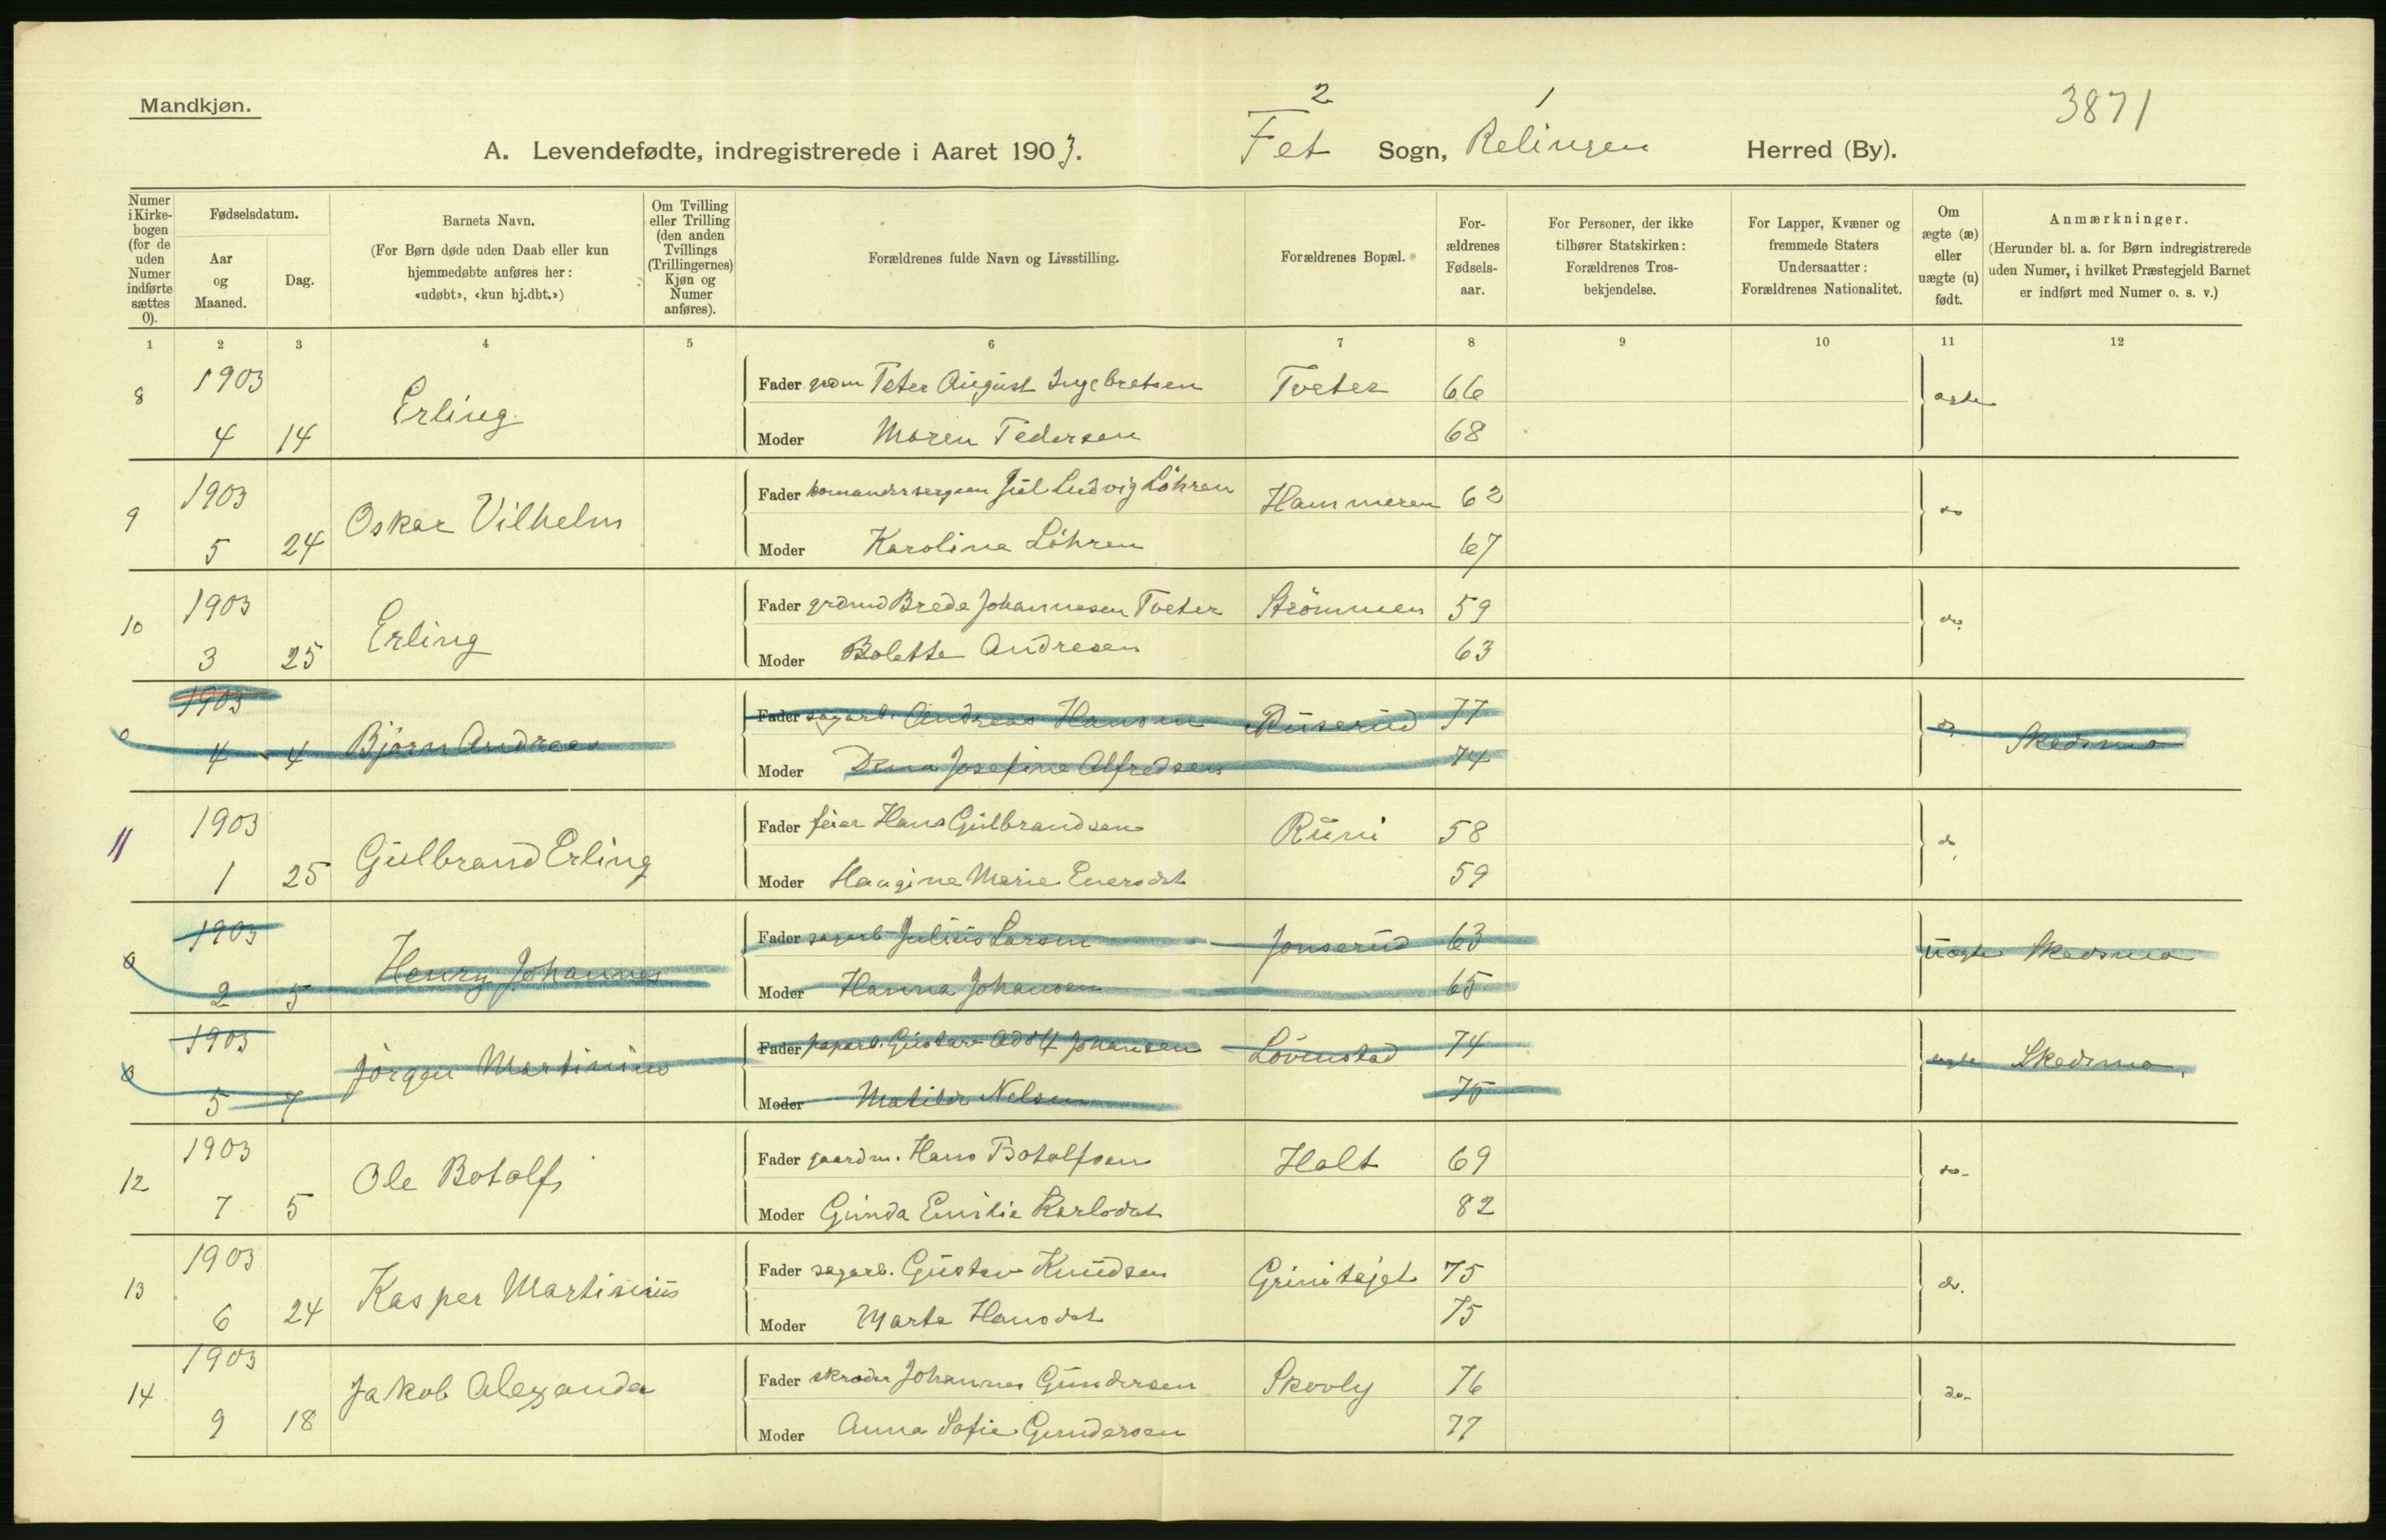 Mandkjøn.
2 1 3871
A. Levendefødte, indregistrerede i Aaret 1903. Fet Sogn, Relingen Herred (By).
Numer i Kirkebogen (for de uden Numer indførte sættes 0).
Fødselsdatum.
Aar og Maaned.
Dag.
Barnets Navn.
(For Børn døde uden Daab eller kun
hjemmedøbte anføres her:
«udøbt», «kun hj.dbt.»)
Om Tvilling eller Trilling (den anden Tvillings (Trillingernes) Kjøn og Numer anføres).
Forældrenes fulde Navn og Livsstilling.
Forældrenes Bopæl.
For-
ældrenes
Fødsels-
aar.
For Personer, der ikke
tilhører Statskirken:
Forældrenes Tros-
bekjendelse.
For Lapper, Kvæner og
fremmede Staters
Undersaatter:
Forældrenes Nationalitet.
Om
ægte (æ)
eller
uægte (u)
født.
Anmærkninger.
(Herunder bl. a. for Børn indregistrerede
uden Numer, i hvilket Præstegjeld Barnet
er indført med Numer o. s. v.)
1 2 3 4 5 6 7 8 9 10 11 12
8 1903 Erling Fader Peter August Ingebretsen Tveter 66 ægte
4 14 Moder Maren Pedersen 68
9 1903 Oskar Vilhelm Fader Jul Ludvig Löhren Hammeren 62 do
5 24 Moder Karoline Löhren 67
10 1903 Erling Fader grdmd Brede Johannesen Tveter Strömmen 59 do.
3 25 Moder Bolette Andresen 63
0 1903 Bjørn Andreas Fader sagarb. Andreas Hansen Ruserud 77 do. Skedsmo
4 4 Moder Dina Josefine Alfredsen 74
11 1903 Gulbrand Erling Fader feier Hans Gulbrandsen Runi 58 do
1 25 Moder Haagine Marie Eversdat 59
0 1903 Henry Johannes Fader sagarb Julius Larsen Jonserud 63 uægte Skedsmo
2 5 Moder Hanna Johansen 65
0 1903 Jörgen Martinius Fader paparb. Gustav Adolf Johansen Lövenstad 74 ægte Skedsmo.
5 7 Moder Matilde Nelsen 75
12 1903 Ole Botolf Fader gaardm. Hans Botolfsen Holt 69 do-
7 5 Moder Gunda Emilie Karlsdat 82
13 1903 Kasper Martinius Fader sagarb. Gustav Knudsen Grinitajet 75 do.
6 24 Moder Marte Hansdat 75
14 1903 Jakob Alexander Fader skræder Johannes Gundersen Skovly 76 do-
9 18 Moder Anna Sofie Gundersen 77